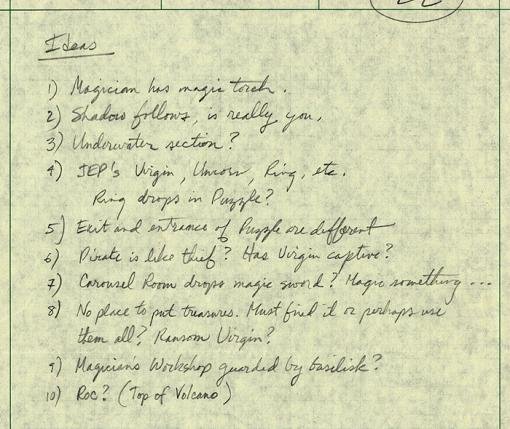 Ideas
1) Magician has magic torch.
2) Shadow follows, is really you.
3) Underwater section?
4) JEP's Virgin, Unicorn, Ring, etc.
Ring drops in Puzzle?
5) Exit and entrance of Puzzle are different
6) Pirate is like thief? Has Virgin captive?
7) Carousel Room drops magic sword? Magic something...
8) No place to put treasures. Must find it or perhaps use
them all? Ransom Virgin?
9) Magician's Workshop guarded by basilisk?
10) Roc? (Top of Volcano)